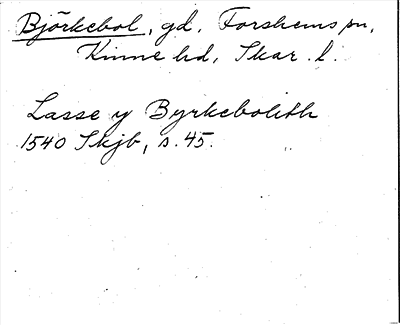 Björkebol, gd, Forshems sn,
Kinne hd, Skar. l.
Lasse y Byrkebolith
1540 Skjb, s. 45.